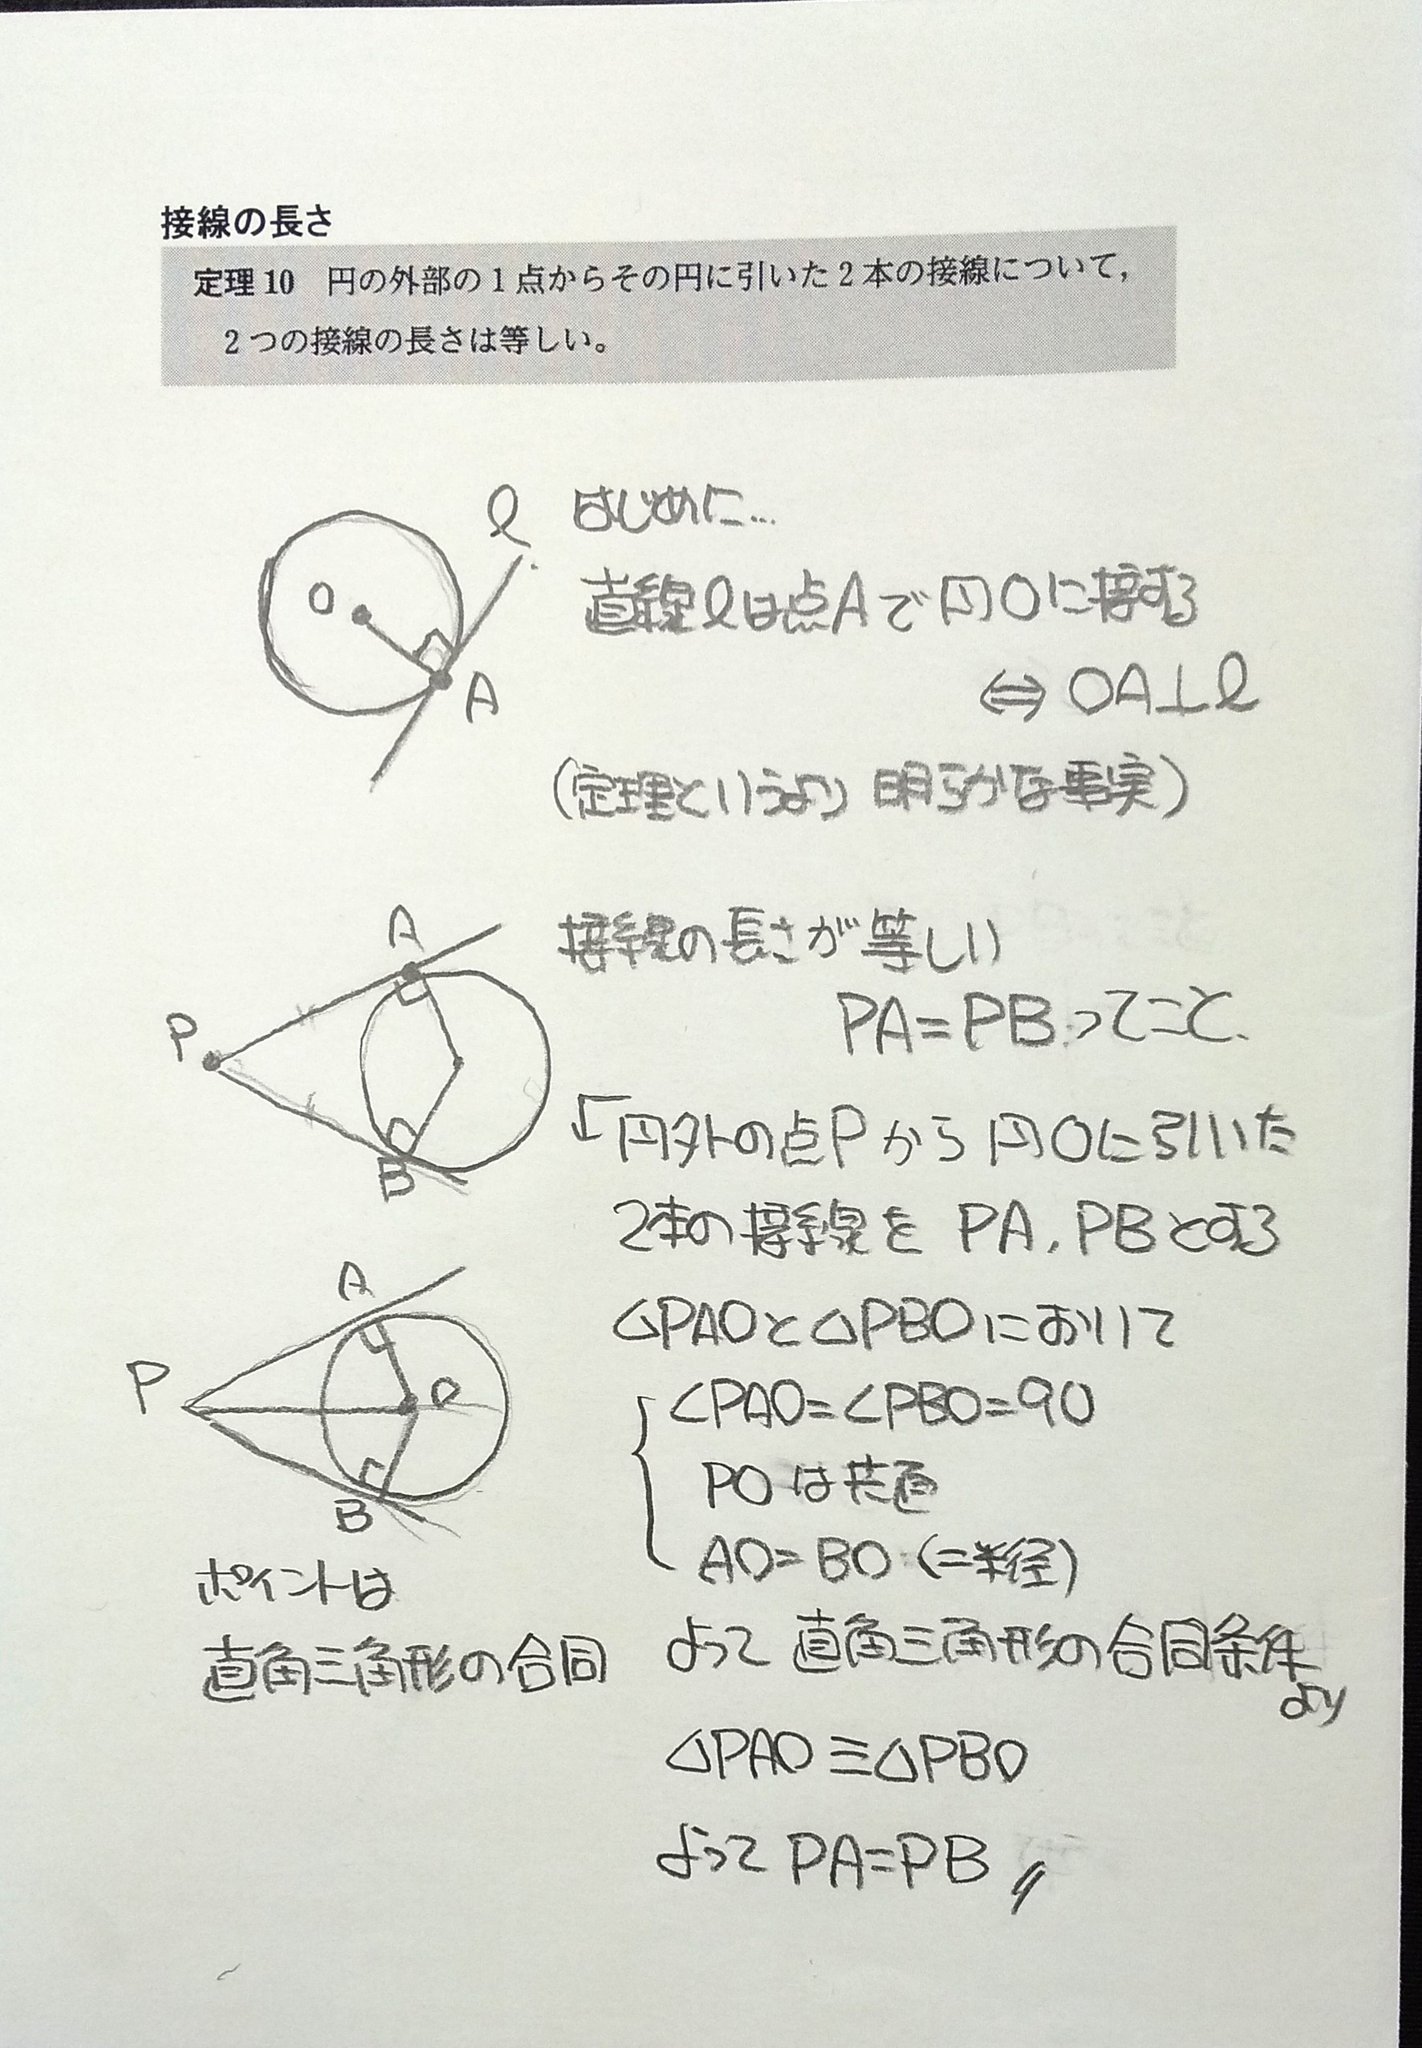 接線の長さ
定理10 円の外部の1点からその円に引いた2本の接線について,
2つの接線の長さは等しい。
ℓ
O
A
はじめに…
直線ℓは点Aで円Oに接する
⇔ OA⊥ℓ
(定理というより 明らかな事実)
A
P
B
接線の長さが等しい
PA=PBってこと.
円外の点Pから円Oに引いた
2本の接線を PA, PBとする
A
P
O
B
△PAOと△PBOにおいて
∠PAO=∠PBO=90
POは共通
AO=BO (=半径)
ポイントは
直角三角形の合同
よって 直角三角形の合同条件
より
△PAO≡△PBO
よって PA=PB〃